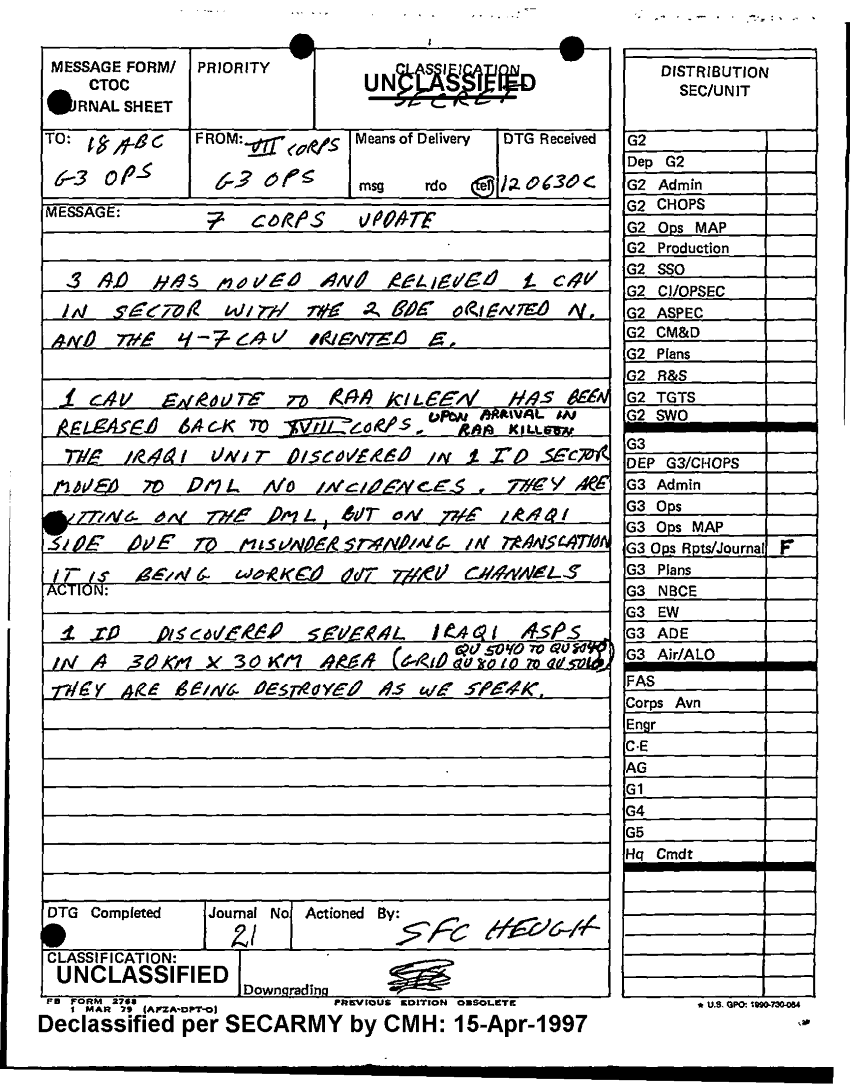 MESSAGE FORM/
CTOC
RNAL SHEET
PRIORITY
CLASSIFICATION
UNCLASSIFIED
SECRET
TO: 18 ABC
G-3 OPS
FROM: VII CORPS
G3 OPS
Means of Delivery
msg rdo tel
DTG Received
120630C
MESSAGE:
7 CORPS UPDATE
3 AD HAS MOVED AND RELIEVED 1 CAV
IN SECTOR WITH THE 2 BDE ORIENTED N.
AND THE 4-7 CAV ORIENTED E.
1 CAV ENROUTE TO RAA KILEEN HAS BEEN
RELEASED BACK TO XVIII CORPS. UPON ARRIVAL IN
RAA KILLEEN
THE IRAQI UNIT DISCOVERED IN 1 ID SECTOR
MOVED TO DML NO INCIDENCES. THEY ARE
ITTING ON THE DML, BUT ON THE IRAQI
SIDE DUE TO MISUNDERSTANDING IN TRANSLATION
IT IS BEING WORKED OUT THRU CHANNELS
ACTION:
1 ID DISCOVERED SEVERAL IRAQI ASPS
IN A 30KM X 30KM AREA (GRID QU 5040 TO QU 8040
QU 8010 TO QU )
THEY ARE BEING DESTROYED AS WE SPEAK.
DTG Completed
Journal No
21
Actioned By:
SFC HEUGH
CLASSIFICATION:
UNCLASSIFIED
Downgrading
FB FORM 2768
1 MAR 79 (AFZA-DPT-O)
PREVIOUS EDITION OBSOLETE
Declassified per SECARMY by CMH: 15-Apr-1997
DISTRIBUTION
SEC/UNIT
G2
Dep G2
G2 Admin
G2 CHOPS
G2 Ops MAP
G2 Production
G2 SSO
G2 CI/OPSEC
G2 ASPEC
G2 CM&D
G2 Plans
G2 R&S
G2 TGTS
G2 SWO
G3
DEP G3/CHOPS
G3 Admin
G3 Ops
G3 Ops MAP
G3 Ops Rpts/Journal F
G3 Plans
G3 NBCE
G3 EW
G3 ADE
G3 Air/ALO
FAS
Corps Avn
Engr
C-E
AG
G1
G4
G5
Hq Cmdt
* U.S. GPO: 1990-730-084